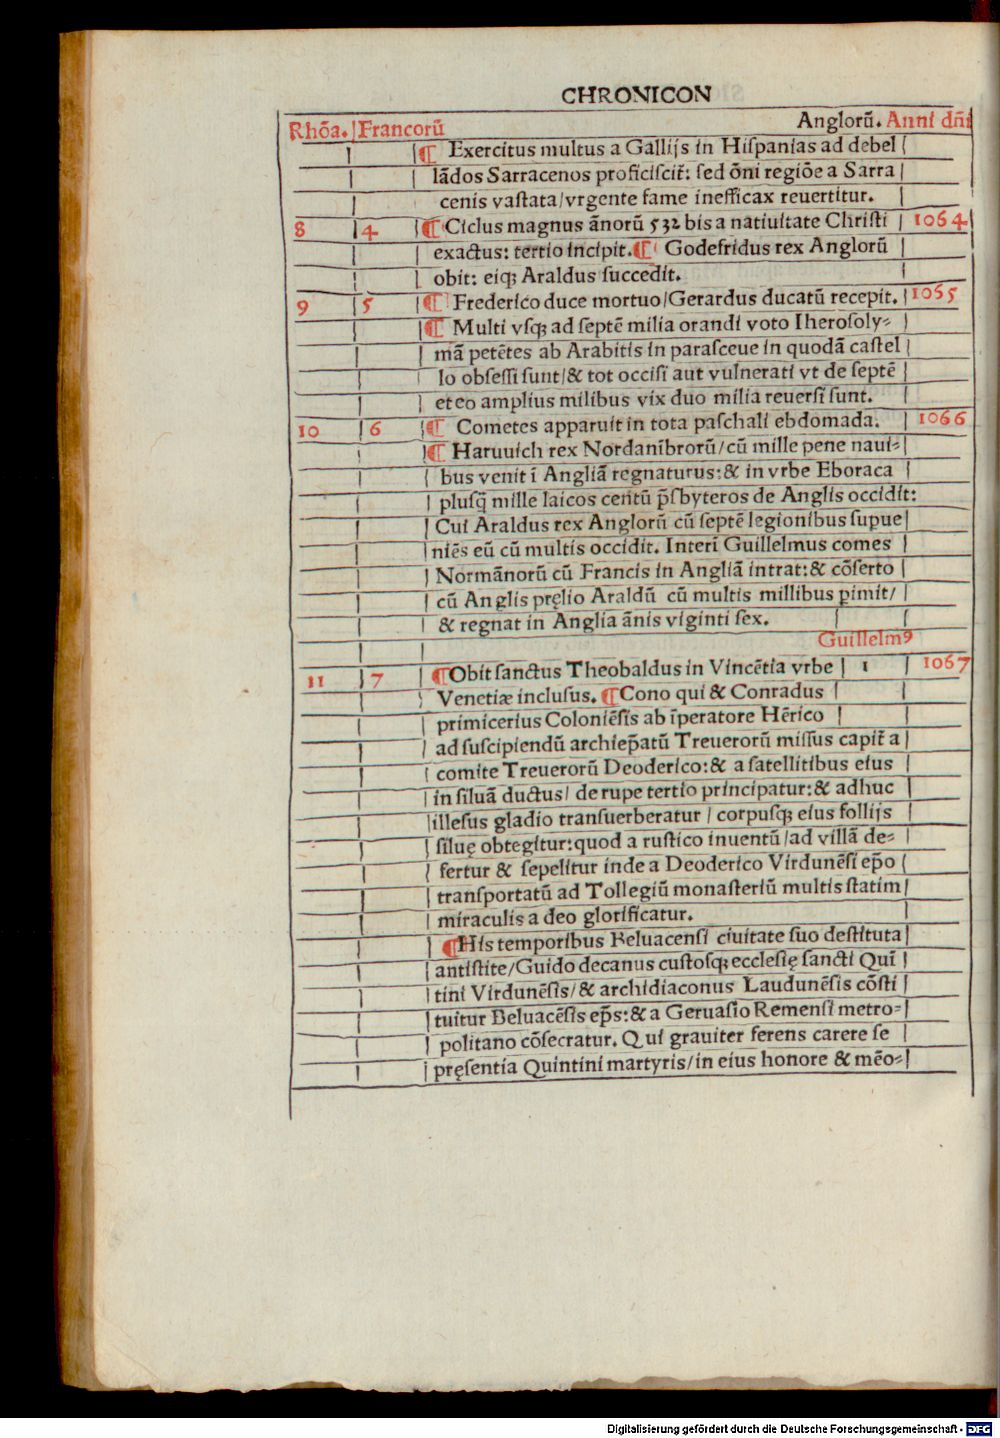 CHRONICON
Rhõa. Francorũ Anglorũ. Anni dñi
¶ Exercitus multus a Gallijs in Hiſpanias ad debel
lãdos Sarracenos proficiſcit̃: ſed õni regiõe a Sarra
cenis vaſtata/vrgente fame inefficax reuertitur.
8 4 ¶ Ciclus magnus ãnorũ 532 bis a natiuitate Chriſti 1064
exactus: tertio incipit. ¶ Godefridus rex Anglorũ
obit: eiqꝫ Araldus ſuccedit.
9 5 ¶ Frederico duce mortuo/Gerardus ducatũ recepit. 1065
¶ Multi vſqꝫ ad ſeptẽ milia orandi voto Iheroſoly⸗
mã petẽtes ab Arabitis in paraſceue in quodã caſtel
lo obſeſſi ſunt/& tot occiſi aut vulnerati vt de ſeptẽ
et eo amplius milibus vix duo milia reuerſi ſunt.
10 6 ¶ Cometes apparuit in tota paſchali ebdomada. 1066
¶ Haruuich rex Nordanĩbrorũ/cũ mille pene naui⸗
bus venit ĩ Angliã regnaturus: & in vrbe Eboraca
pluſq̃ mille laicos centũ p̃ſbyteros de Anglis occidit:
Cui Araldus rex Anglorũ cũ ſeptẽ legionibus ſupue
niẽs eũ cũ multis occidit. Interĩ Guillelmus comes
Normãnorũ cũ Francis in Angliã intrat: & cõſerto
cũ Anglis pręlio Araldũ cũ multis millibus ꝑimit/
& regnat in Anglia ãnis viginti ſex.
Guillelmꝰ
11 7 ¶ Obit ſanctus Theobaldus in Vincẽtia vrbe 1 1067
Venetiæ incluſus. ¶ Cono qui & Conradus
primicerius Coloniẽſis ab ĩperatore Hẽrico
ad ſuſcipiendũ archiep̃atũ Treuerorũ miſſus capit̃ a
comite Treuerorũ Deoderico: & a ſatellitibus eius
in ſiluã ductus/ de rupe tertio principatur: & adhuc
illeſus gladio tranſuerberatur / corpuſqꝫ eius follijs
ſiluę obtegitur: quod a ruſtico inuentũ/ad villã de⸗
fertur & ſepelitur inde a Deoderico Virdunẽſi ep̃o
tranſportatũ ad Tollegiũ monaſteriũ multis ſtatim
miraculis a deo glorificatur.
¶ His temporibus Beluacenſi ciuitate ſuo deſtituta
antiſtite/Guido decanus cuſtoſqꝫ eccleſię ſancti Quĩ
tini Virdunẽſis/& archidiaconus Laudunẽſis cõſti
tuitur Beluacẽſis ep̃s: & a Geruaſio Remenſi metro⸗
politano cõſecratur. Qui grauiter ferens carere ſe
pręſentia Quintini martyris/in eius honore & mẽo⸗
Digitalisierung gefördert durch die Deutsche Forschungsgemeinschaft - DFG